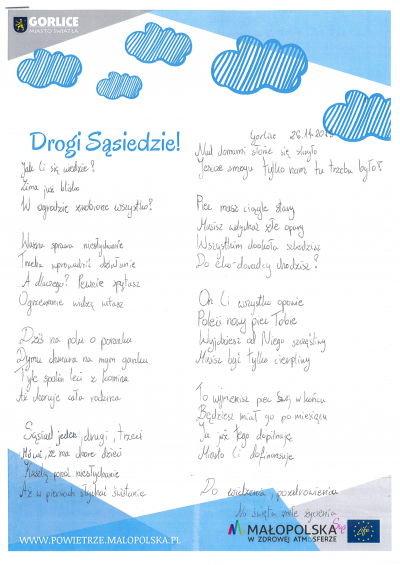 GORLICE
MIASTO ŚWIATŁA
Drogi Sąsiedzie!
Jak Ci się wiedzie?
Zima już blisko
W ogrodzie zrobione wszystko?
Ważna sprawa niesłychanie
Trzeba wprowadzić działanie
A dlaczego? Pewnie spytasz
Ogrzewanie widzę witasz
Dziś na polu o poranku
Dymu chmura na mym ganku
Tyle spalin leci z komina
Aż choruje cała rodzina
Sąsiad jeden, drugi, trzeci
Mówi, że ma chore dzieci
Każdy poraż niesłychanie
Aż w piersiach słychać świstanie
Gorlice 26.11
Nad domami słońce się skryło
Jeszcze smogu tylko nam tu trzeba było?
Piec masz ciągle stary
Musisz wdychać złe opary
Wszystkim dookoła szkodzisz
Do eko-doradcy chodzisz?
On Ci wszystko opowie
Poleci nowy piec Tobie
Wyjdziesz od Niego szczęśliwy
Musisz być tylko cierpliwy
To wymienisz piec swój w końcu
Będziesz miał go po miesiącu
Ja już tego dopilnuję
Miasto Ci dofinansuje
Do widzenia, pozdrowienia
Na święta miłe życzenia
MAŁOPOLSKA
W ZDROWEJ ATMOSFERZE
WWW.POWIETRZE.MALOPOLSKA.PL